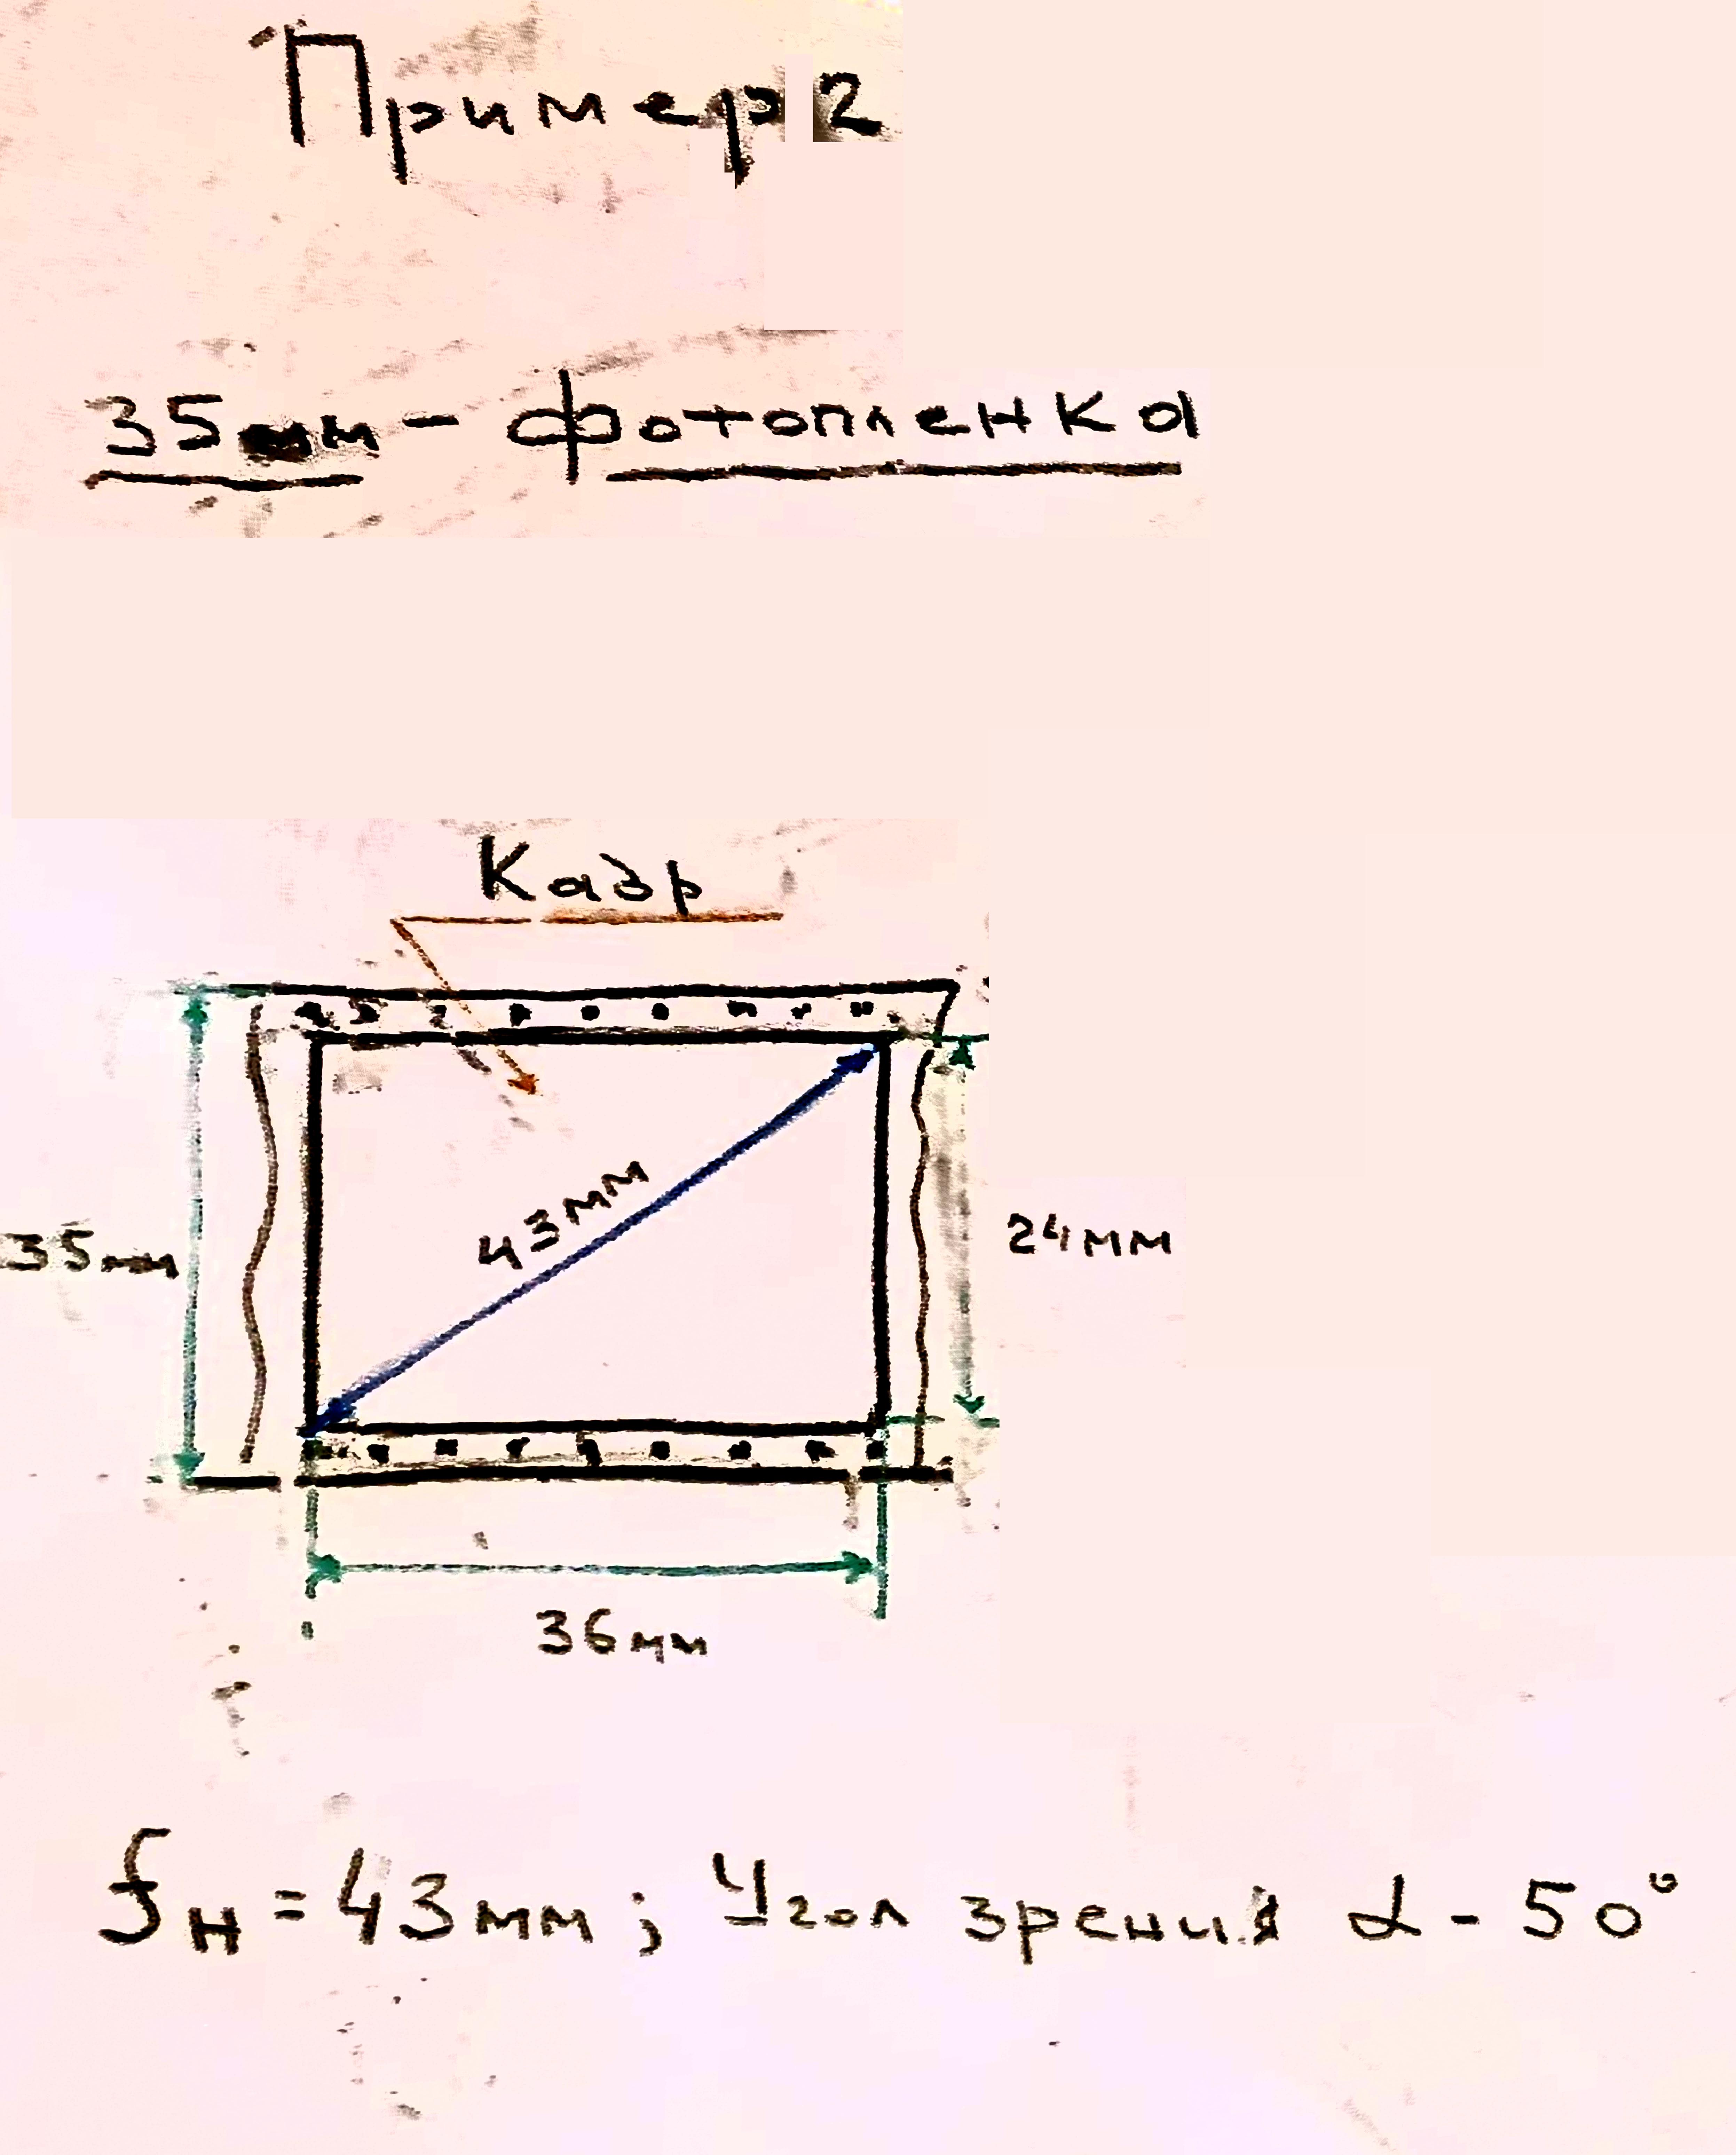 Пример 2
35мм - фотопленка
Кадр
43мм
35мм
24мм
36мм
fн = 43мм; Угол зрения α - 50°